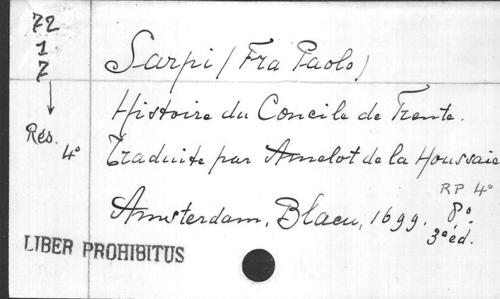 72
1
7
Res.
4°
Sarpi (Fra Paolo)
Histoire du Concile de Trente.
Traduite par Amelot de la Houssaie
RP 4°
Amsterdam, Blaeu, 1699. 8°.
3e éd.
LIBER PROHIBITUS